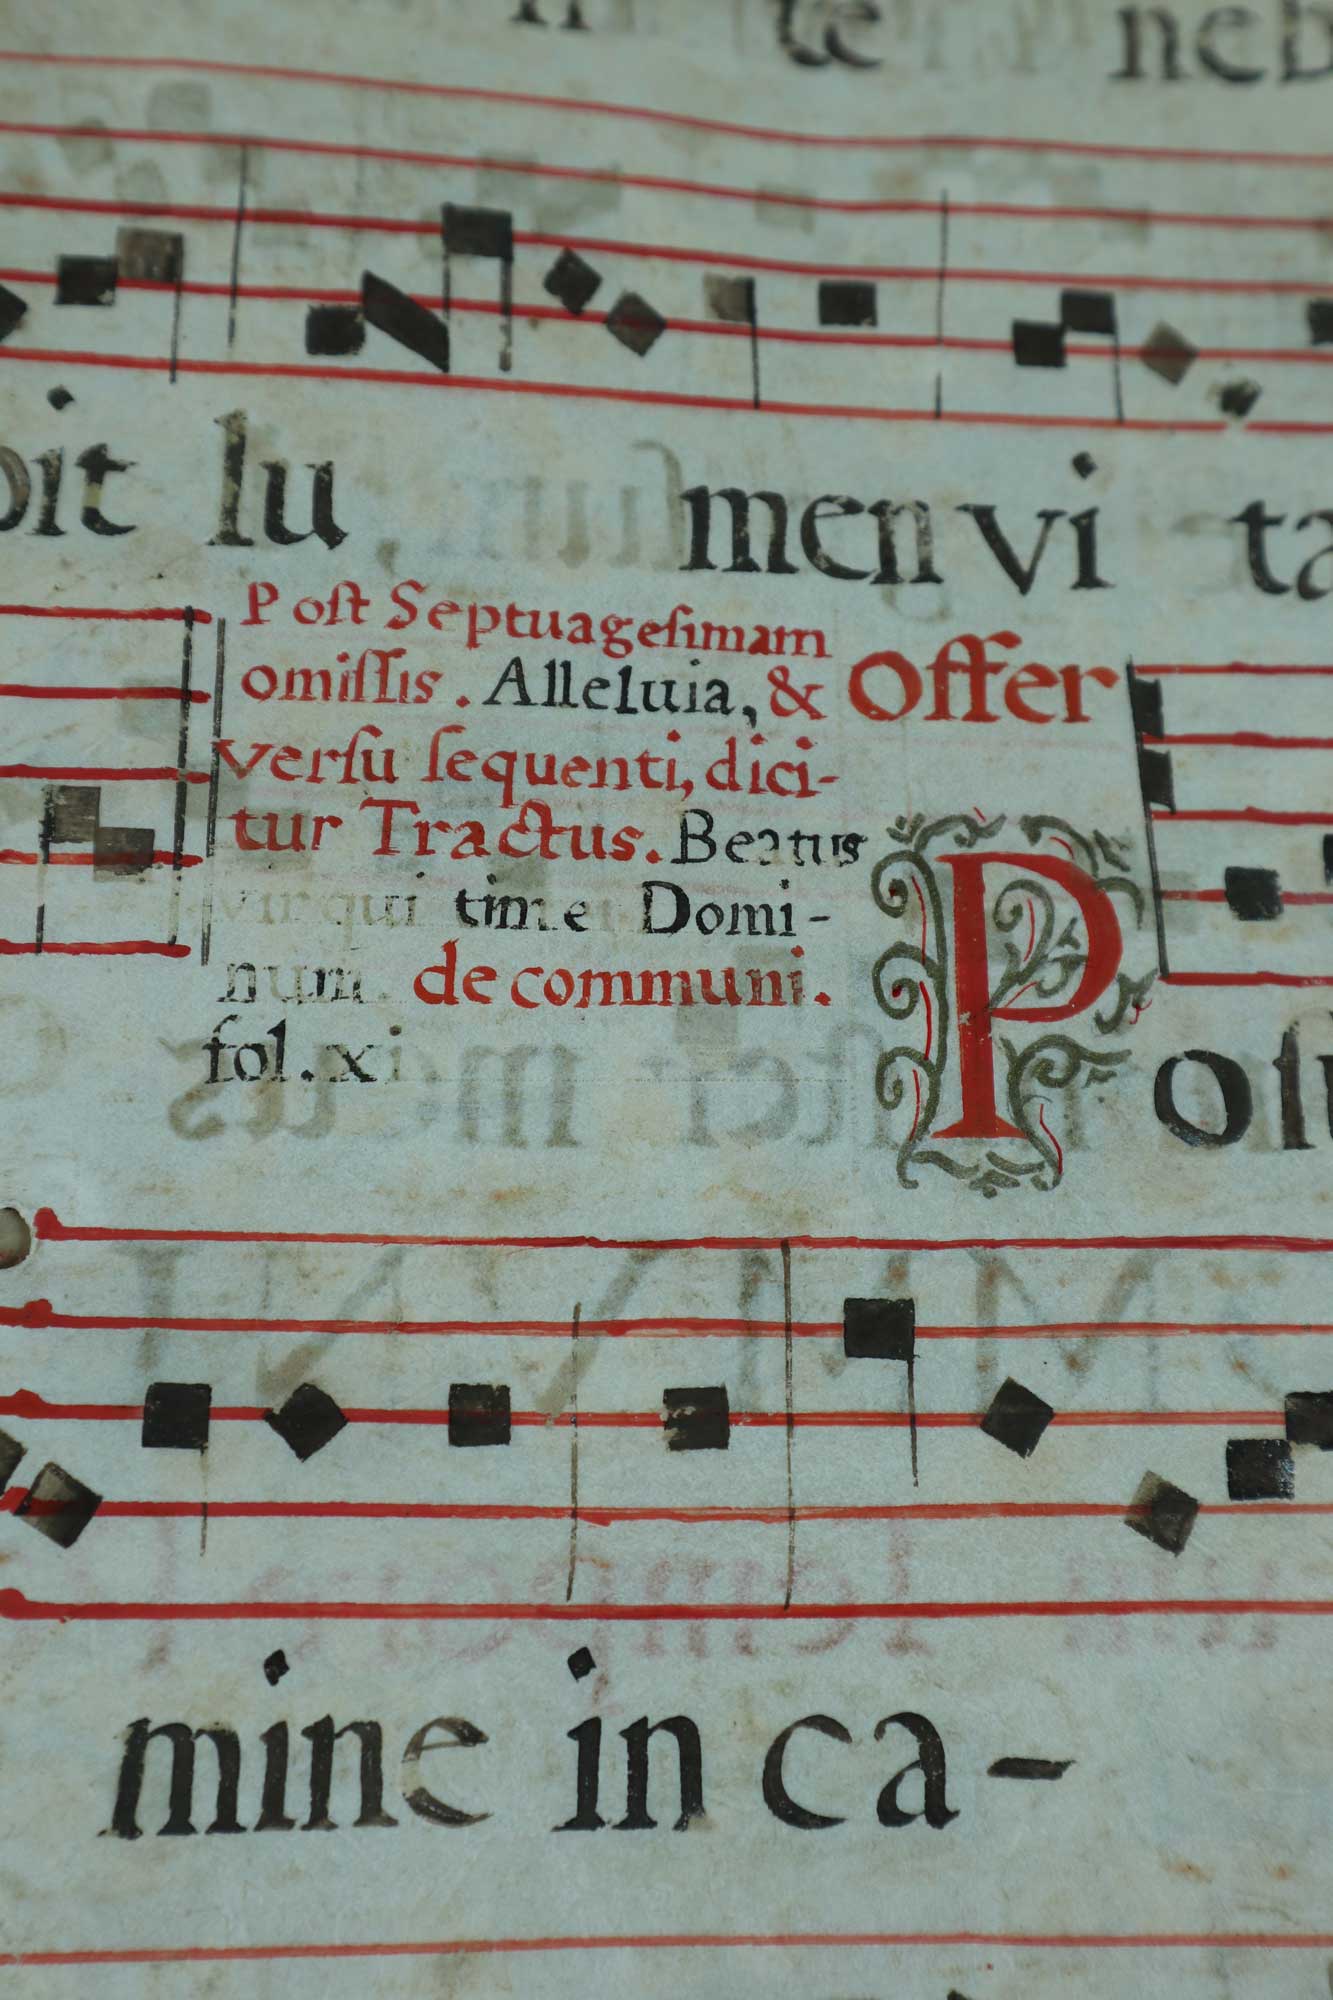 te neb
bit lu men vi ta
Poſt Septuageſimam
omiſſis. Alleluia, & Offer
verſu ſequenti, dici-
tur Tractus. Beatus
vir qui timet Domi-
num. de communi.
fol. xi
Poſu
mine in ca-